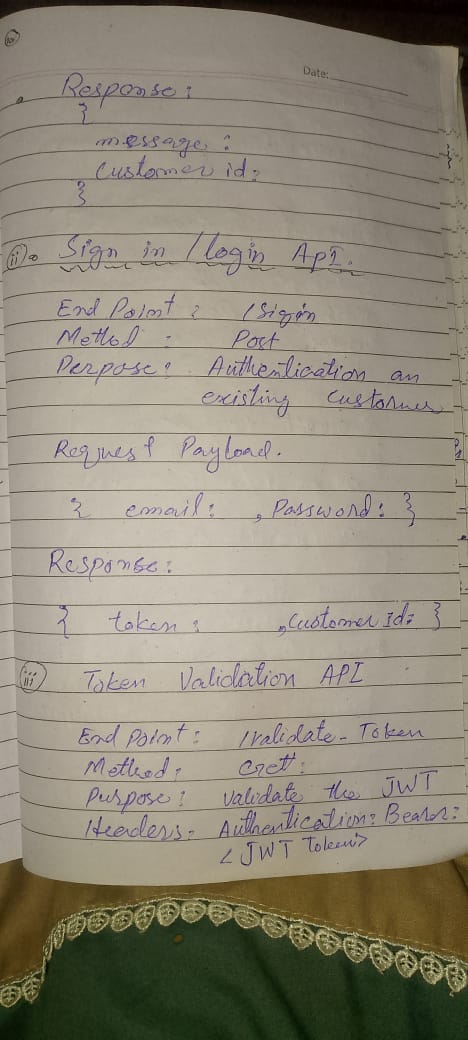 Date:
Response:
{
message:
Customer id:
}
ii). Sign in / login ApI.
End Point : /Sigin
Method : Post
Perpose: Authentication an
existing Customer
Request Payload.
{ email: , Password: }
Response:
{ token: , Customer id: }
iii) Token Validation API
End Point: /validate-Token
Method: Gett:
Purpose: validate the JWT
Headers- Authentication: Bearer:
<JWT Token>